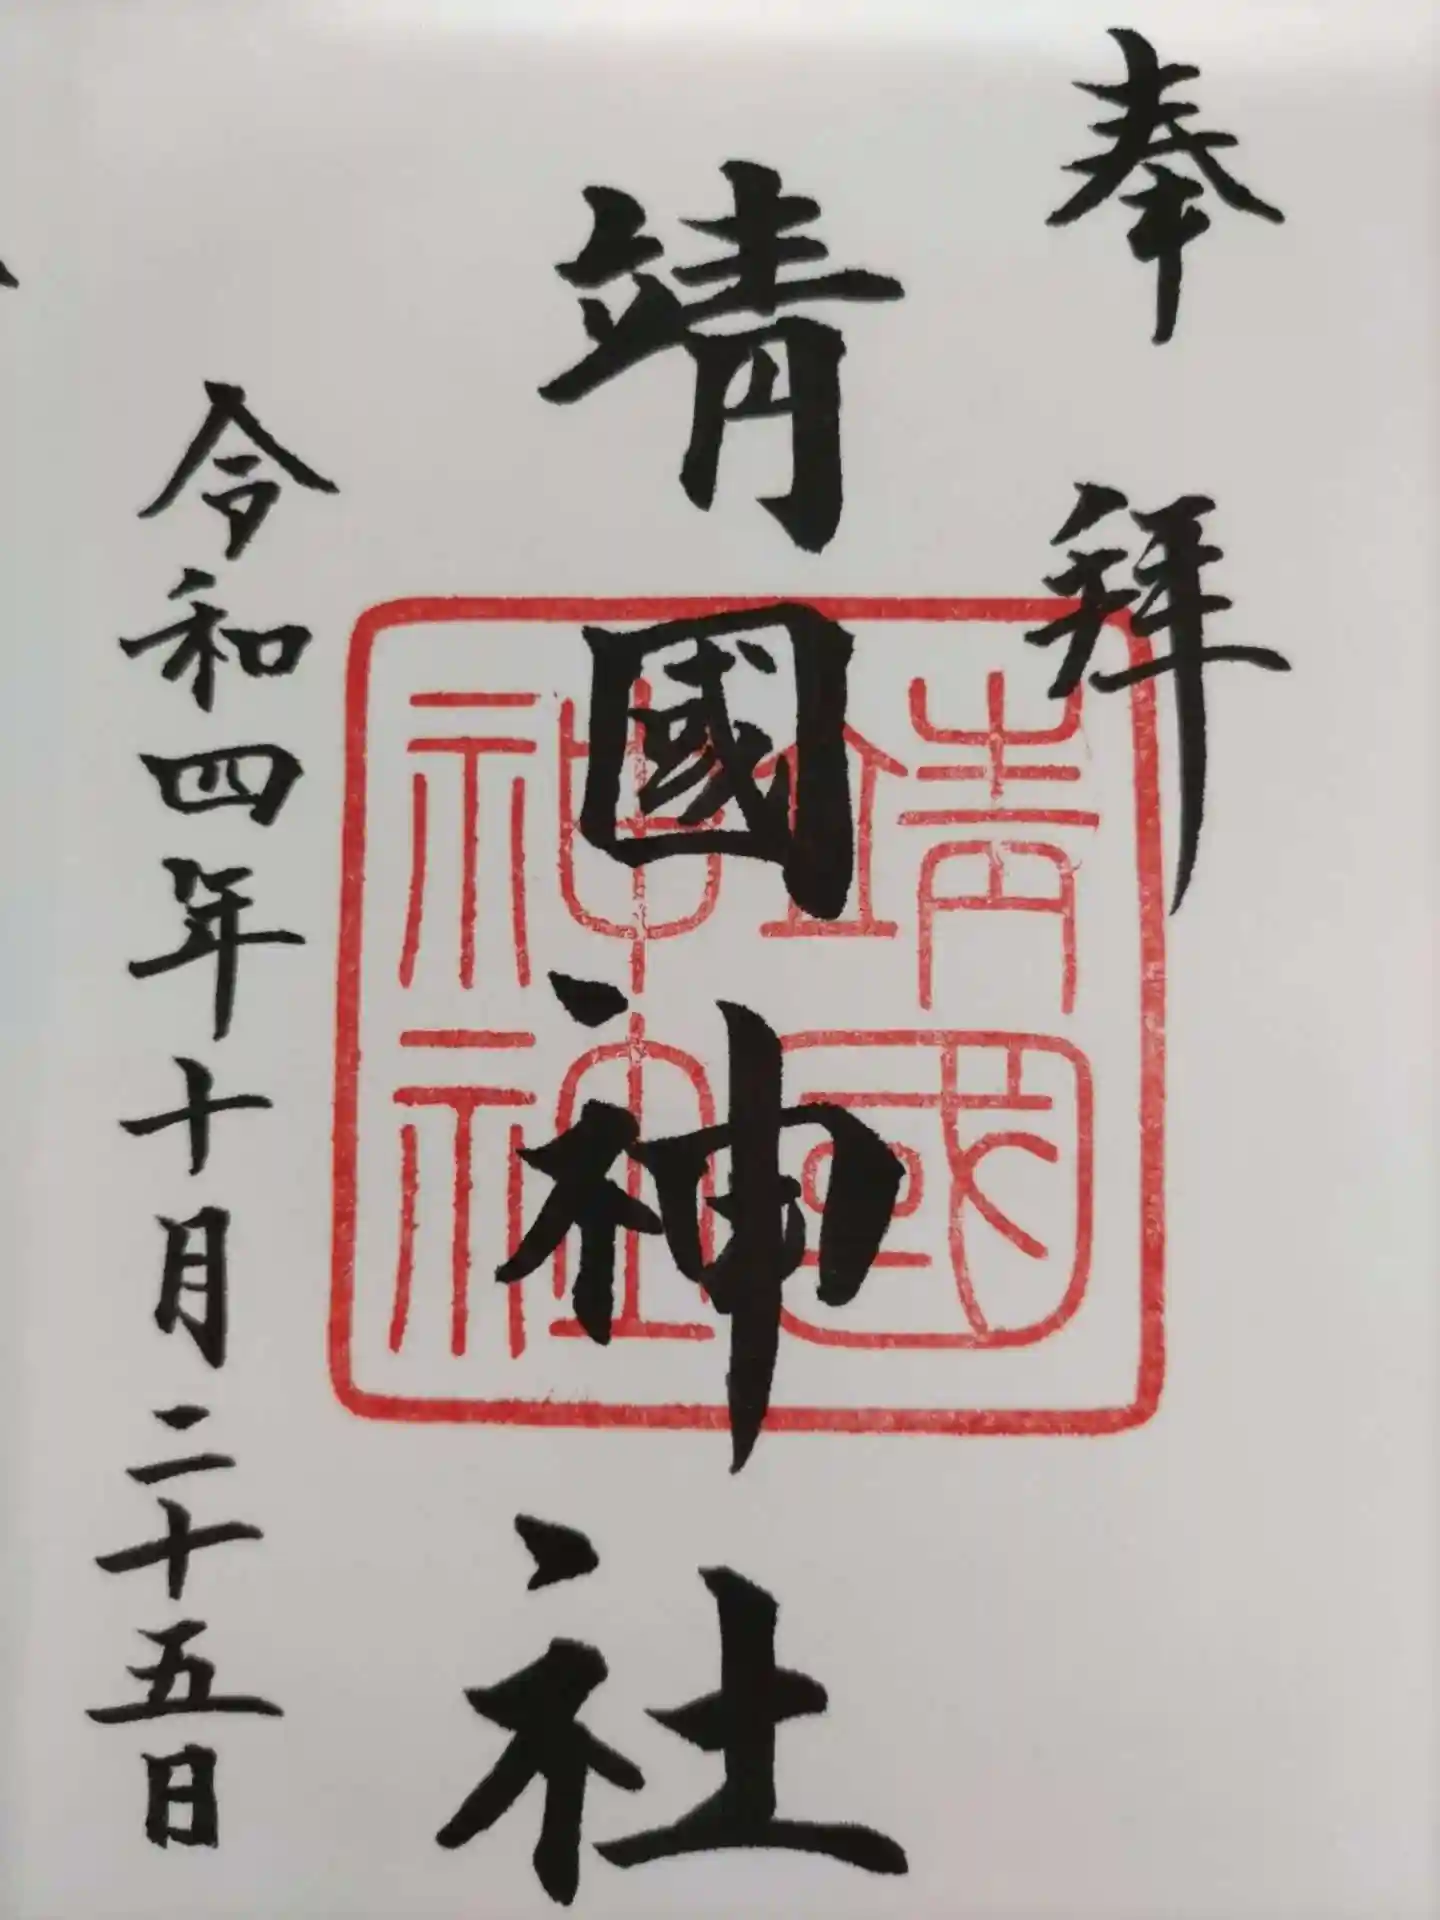 奉拜
靖國神社
靖國
神社
令和四年十月二十五日